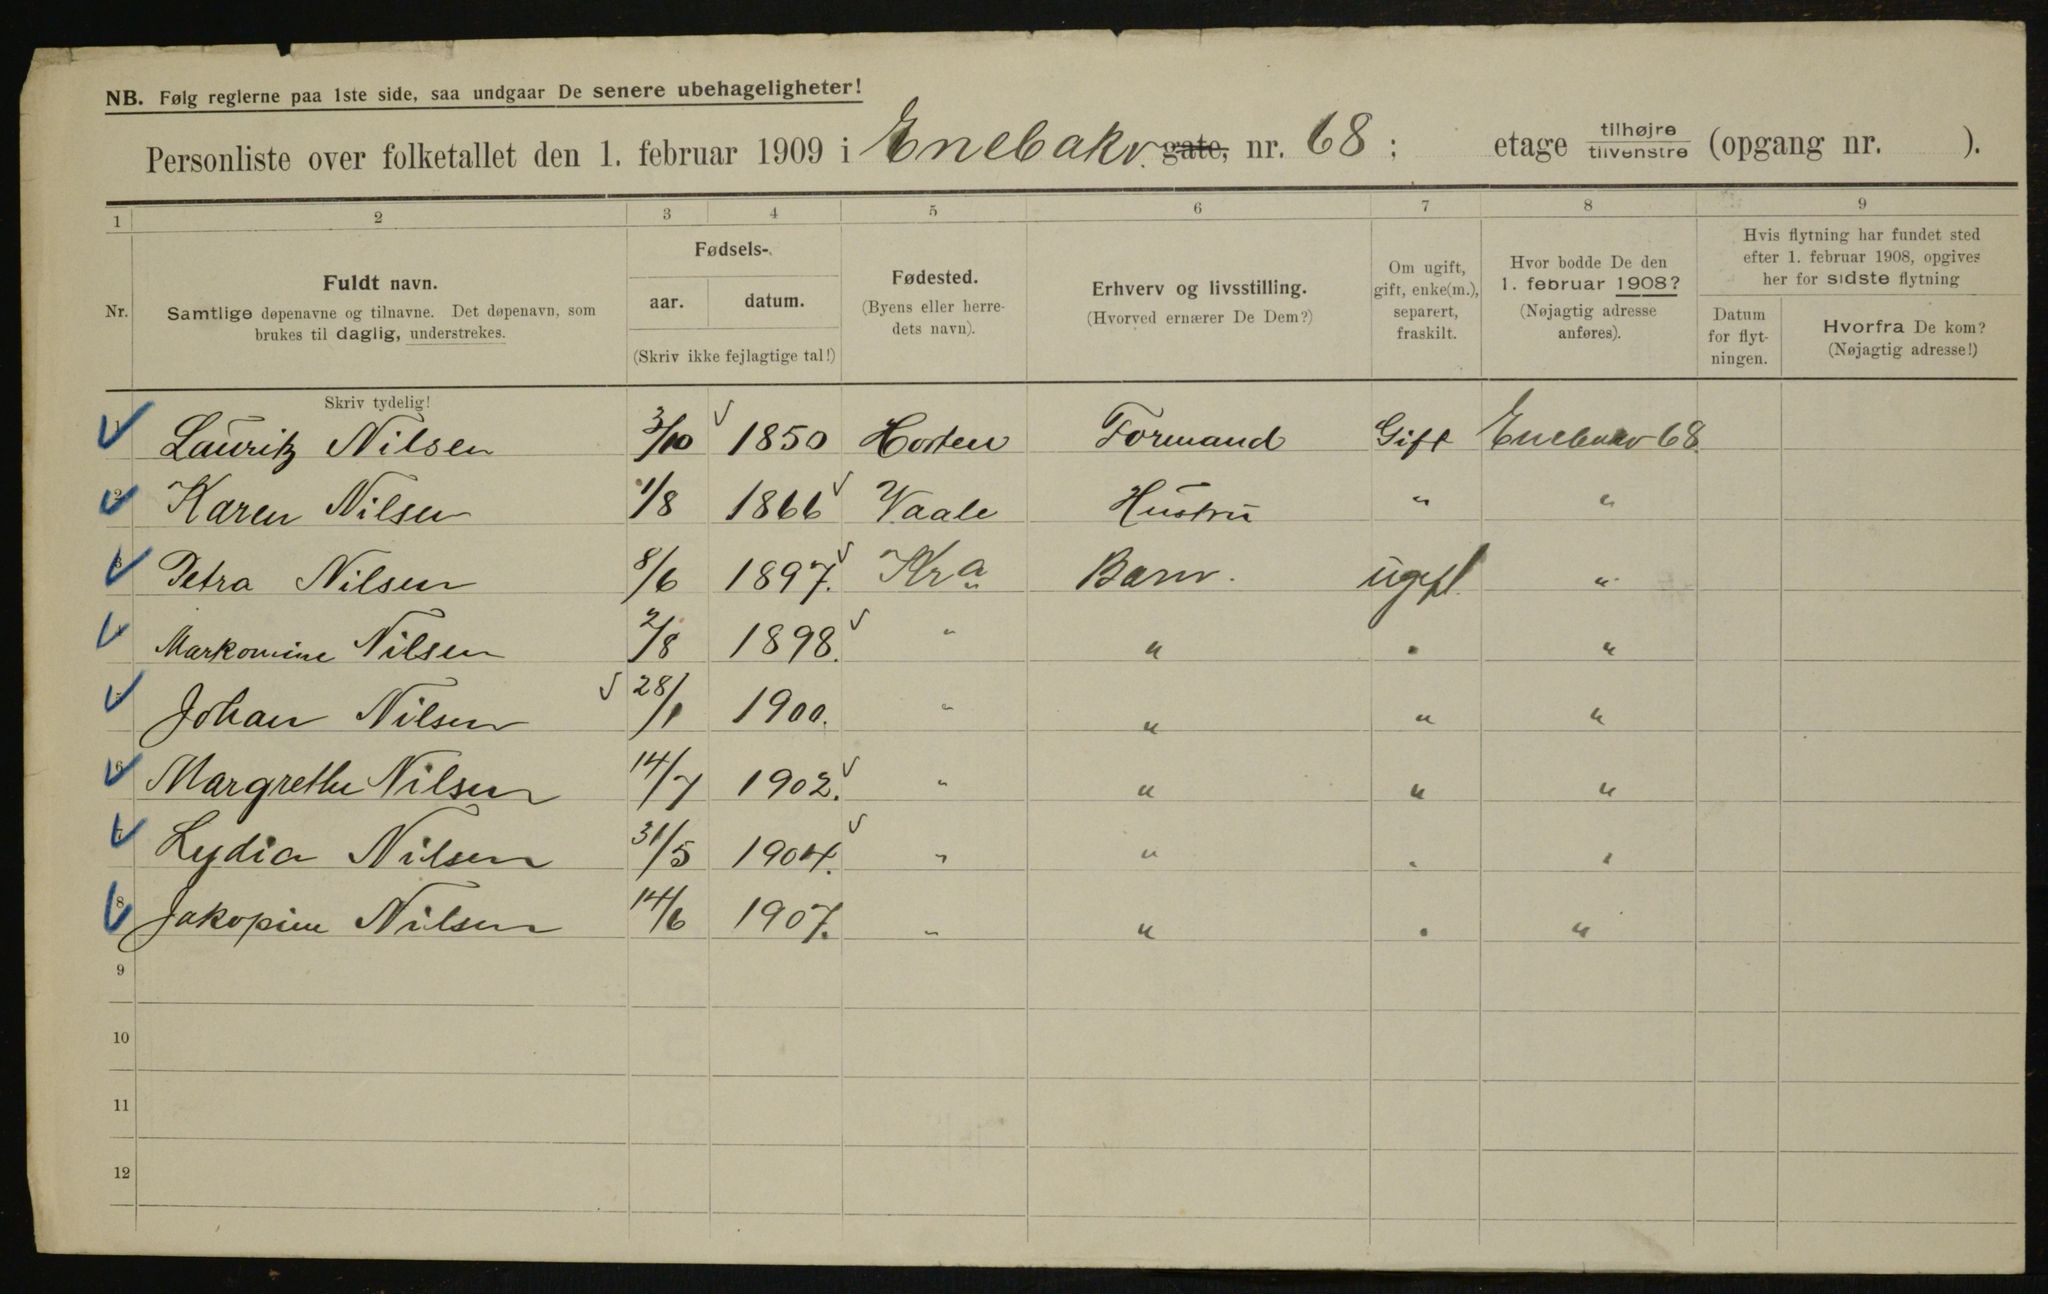 NB. Følg reglerne paa 1ste side, saa undgaar De senere ubehageligheter!
Personliste over folketallet den 1. februar 1909 i Enebakv. gate, nr. 68; etage tilhøjre tilvenstre (opgang nr. ).
1 2 3 4 5 6 7 8 9
Nr.
Fuldt navn.
Samtlige døpenavne og tilnavne. Det døpenavn, som
brukes til daglig, understrekes.
Fødsels-
aar. datum.
(Skriv ikke fejlagtige tal!)
Fødested.
(Byens eller herre-
dets navn).
Erhverv og livsstilling.
(Hvorved ernærer De Dem?)
Om ugift,
gift, enke(m.),
separert,
fraskilt.
Hvor bodde De den
1. februar 1908?
(Nøjagtig adresse
anføres).
Hvis flytning har fundet sted
efter 1. februar 1908, opgives
her for sidste flytning
Datum
for flyt-
ningen.
Hvorfra De kom?
(Nøjagtig adresse!)
Skriv tydelig!
Lauritz Nilsen 3/10 1850 Horten Formand Gift Enebakv 68
2 Karen Nilsen 1/8 1866 Vaale Hustru " "
3 Petra Nilsen 8/6 1897. Kra Barn. ugift. "
4 Markomine Nilsen 2/8 1898. " " " "
5 Johan Nilsen 28/1 1900. " " " "
6 Margrethe Nilsen 14/7 1902. " " " "
7 Lydia Nilsen 31/5 1904. " " " "
8 Jakopine Nilsen 14/6 1907. " " " "
9
10
11
12